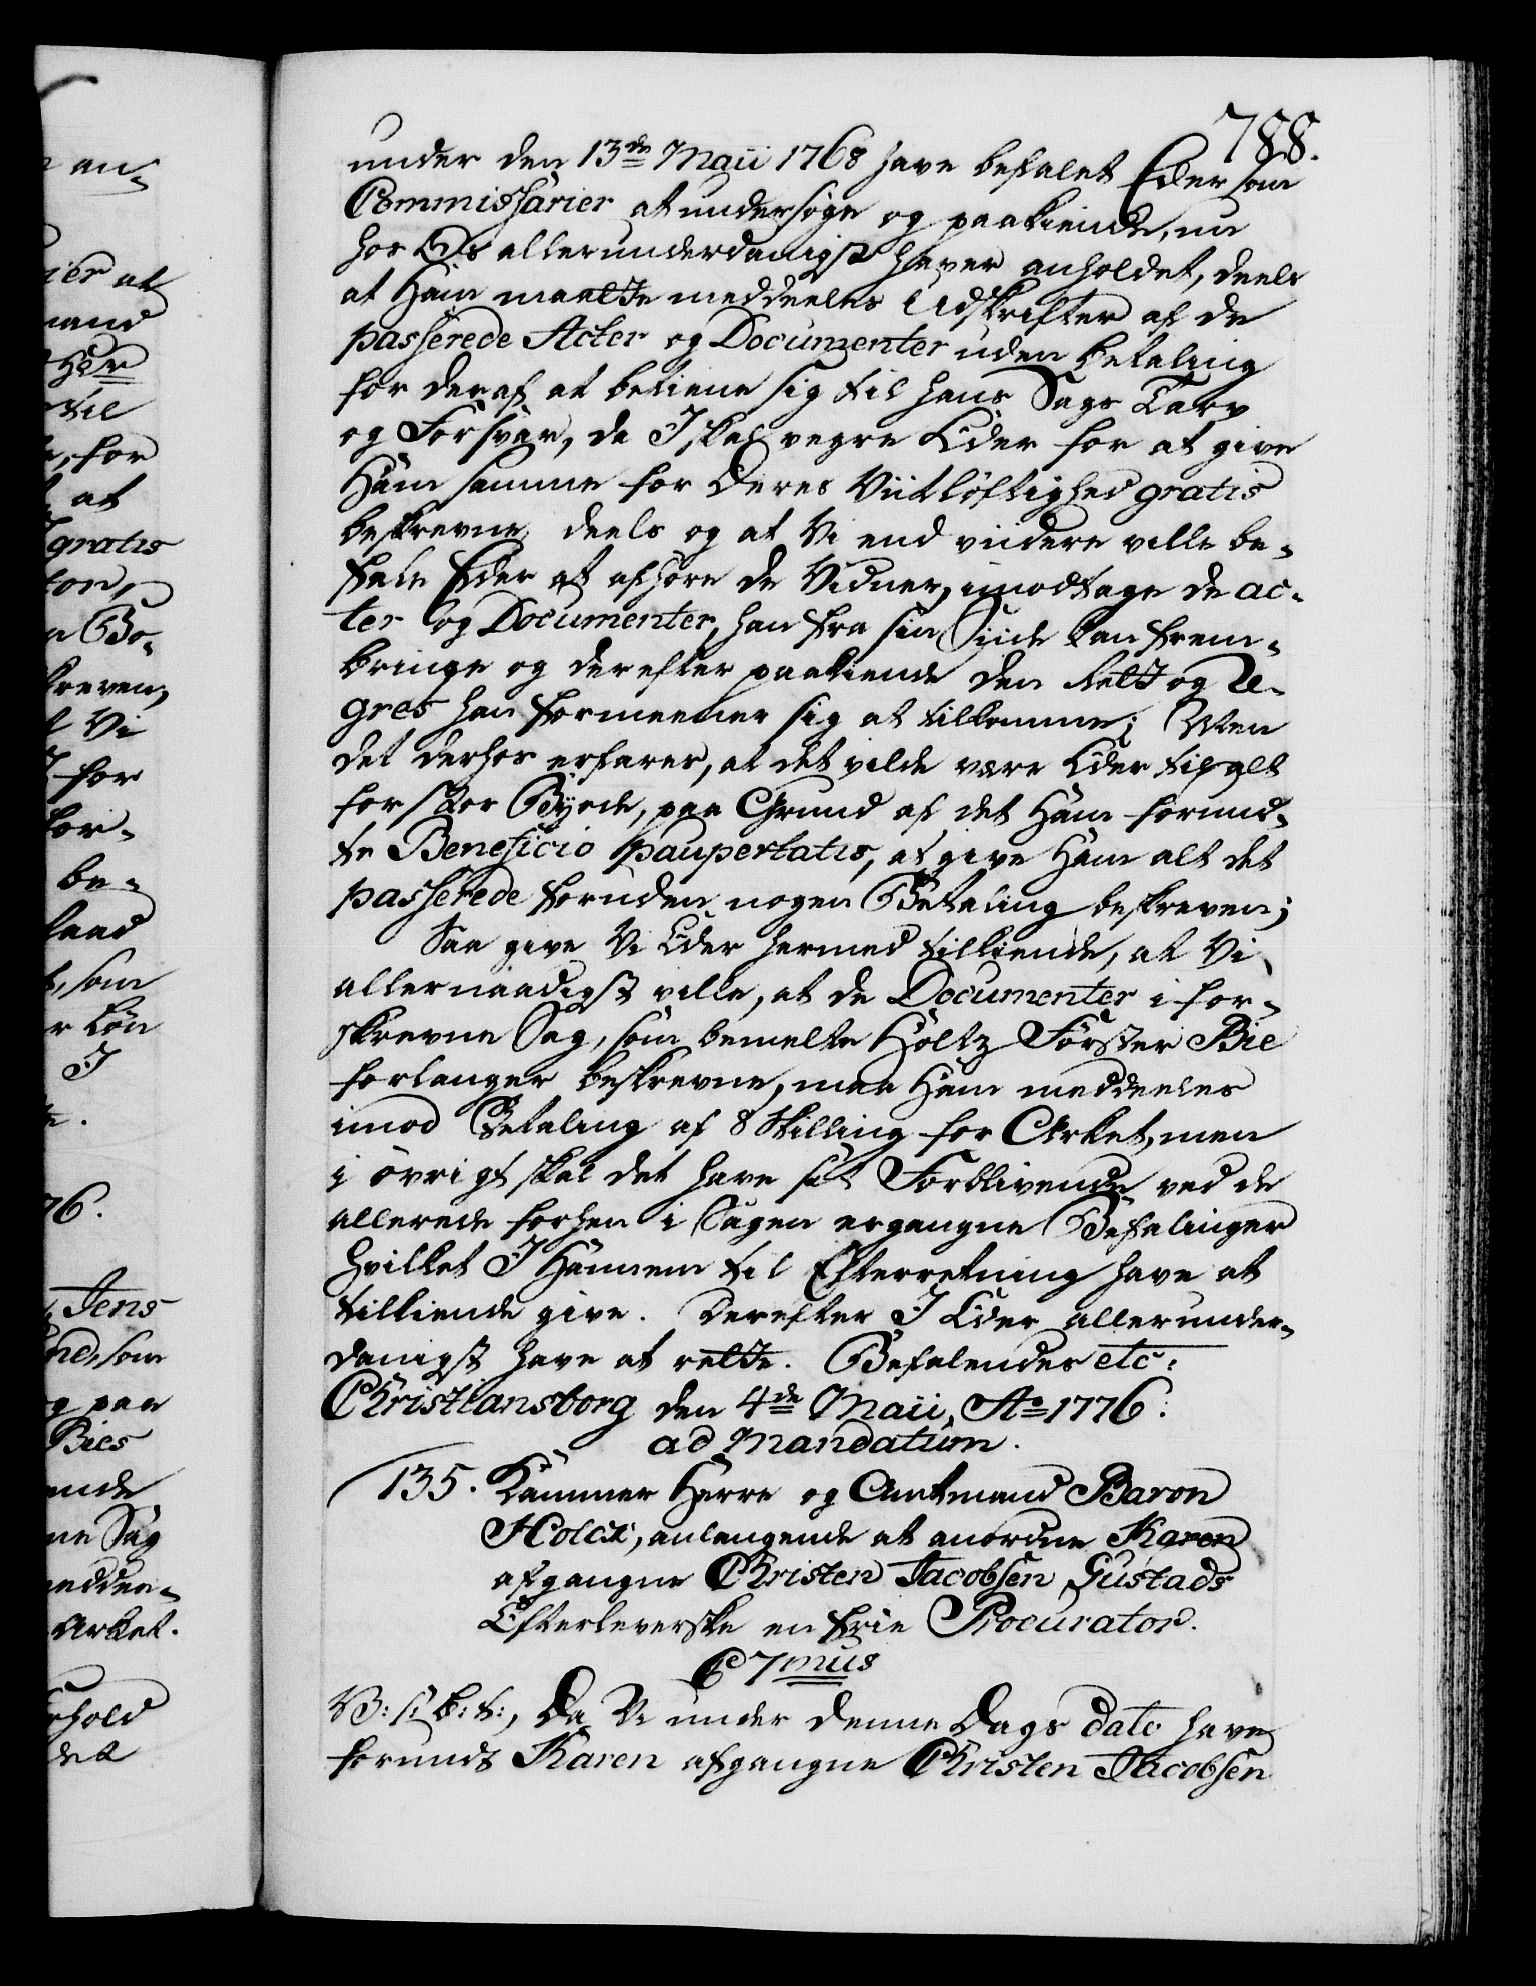 788.
under den 13de Maii 1768 have befalet Eder som
Commissarier at undersøge og paakiende, nu
hos Os allerunderdanigst haver anholdet, deels
at Ham maatte meddeeles Udskrifter af de
passerede Acter og Documenter uden betaling
for deraf at betiene sig til hans Sags Tarv
og Forsvar, da I skal vegre Eder for at give
Ham samme for Deres Viitløftighed gratis
beskrevne, deels og at Vi end viidere ville be-
fale Eder at afhøre de Vidner, imodtage de ac-
ter og Documenter, han fra sin Siide kan frem-
bringe og derefter paakiende den Rett og Re-
gres han formeener sig at tilkomme; Men
det derhos erfarer, at det vilde være Eder tilfalt
for stor Byrde, paa Grund af det Ham forund-
te Beneficio paupertatis, at give Ham alt det
passerede foruden nogen Betaling beskreven;
Saa give Vi Eder hermed tilkiende, at Vi
allernaadigst ville, at de Documenter i for-
skrevne Sag, som bemelte Holtz Førster Bie
forlanger beskrevne, maa Ham meddeeles
imod Betaling af 8 Skilling for Arket, men
i øvrigt skal det have sit Forblivende ved de
allerede forhen i Sagen ergangne Befalinger
hvilket I Hannem til Efterretning have at
tilkiende give. Derefter I Eder allerunder-
danigst have at rette. Befalendes etc:
Christiansborg den 4de Maii Ao 1776.
ad Mandatum.
135. Kammer Herre og Amtmand Baron
Holck, anlangende at anordne Karen
afgangne Christen Jacobsen Gustads
Efterleverske en frie Procurator.
C7mus
V: s: b: t:, Da Vi under denne Dags dato have
forundt Karen afgangne Christen Jacobsen